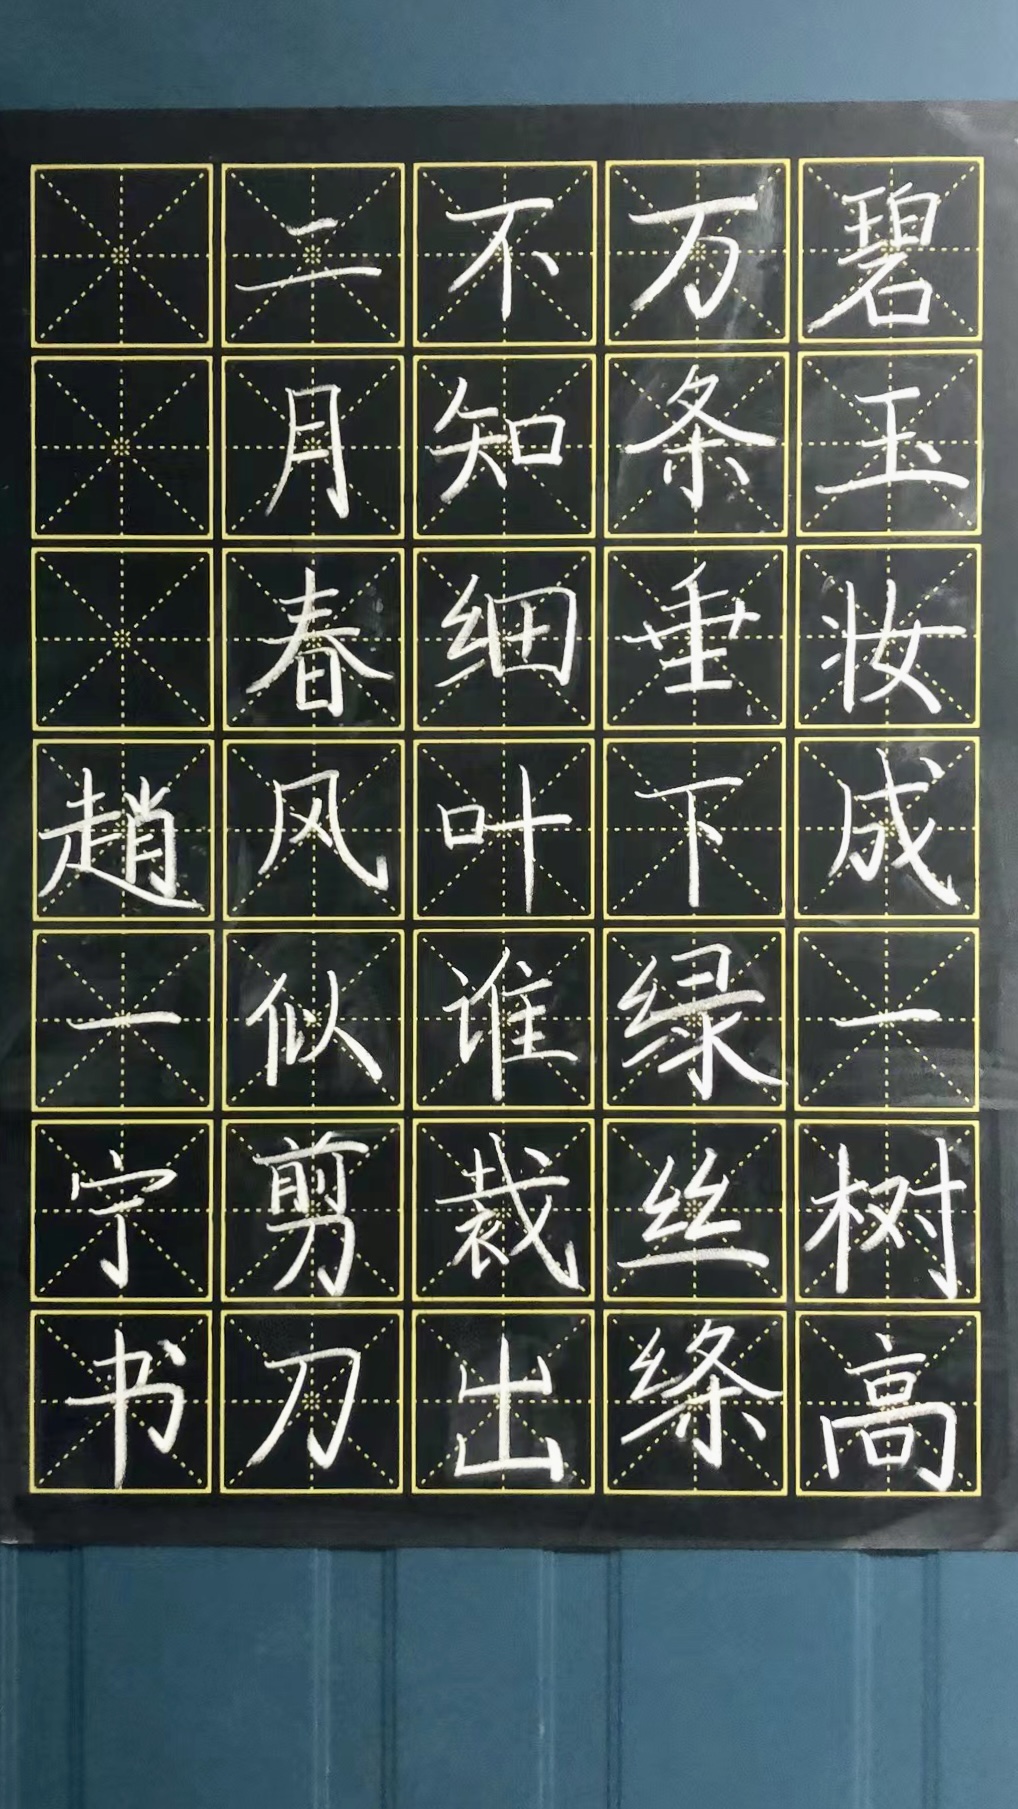 碧玉妆成一树高
万条垂下绿丝绦
不知细叶谁裁出
二月春风似剪刀
趙一宁书